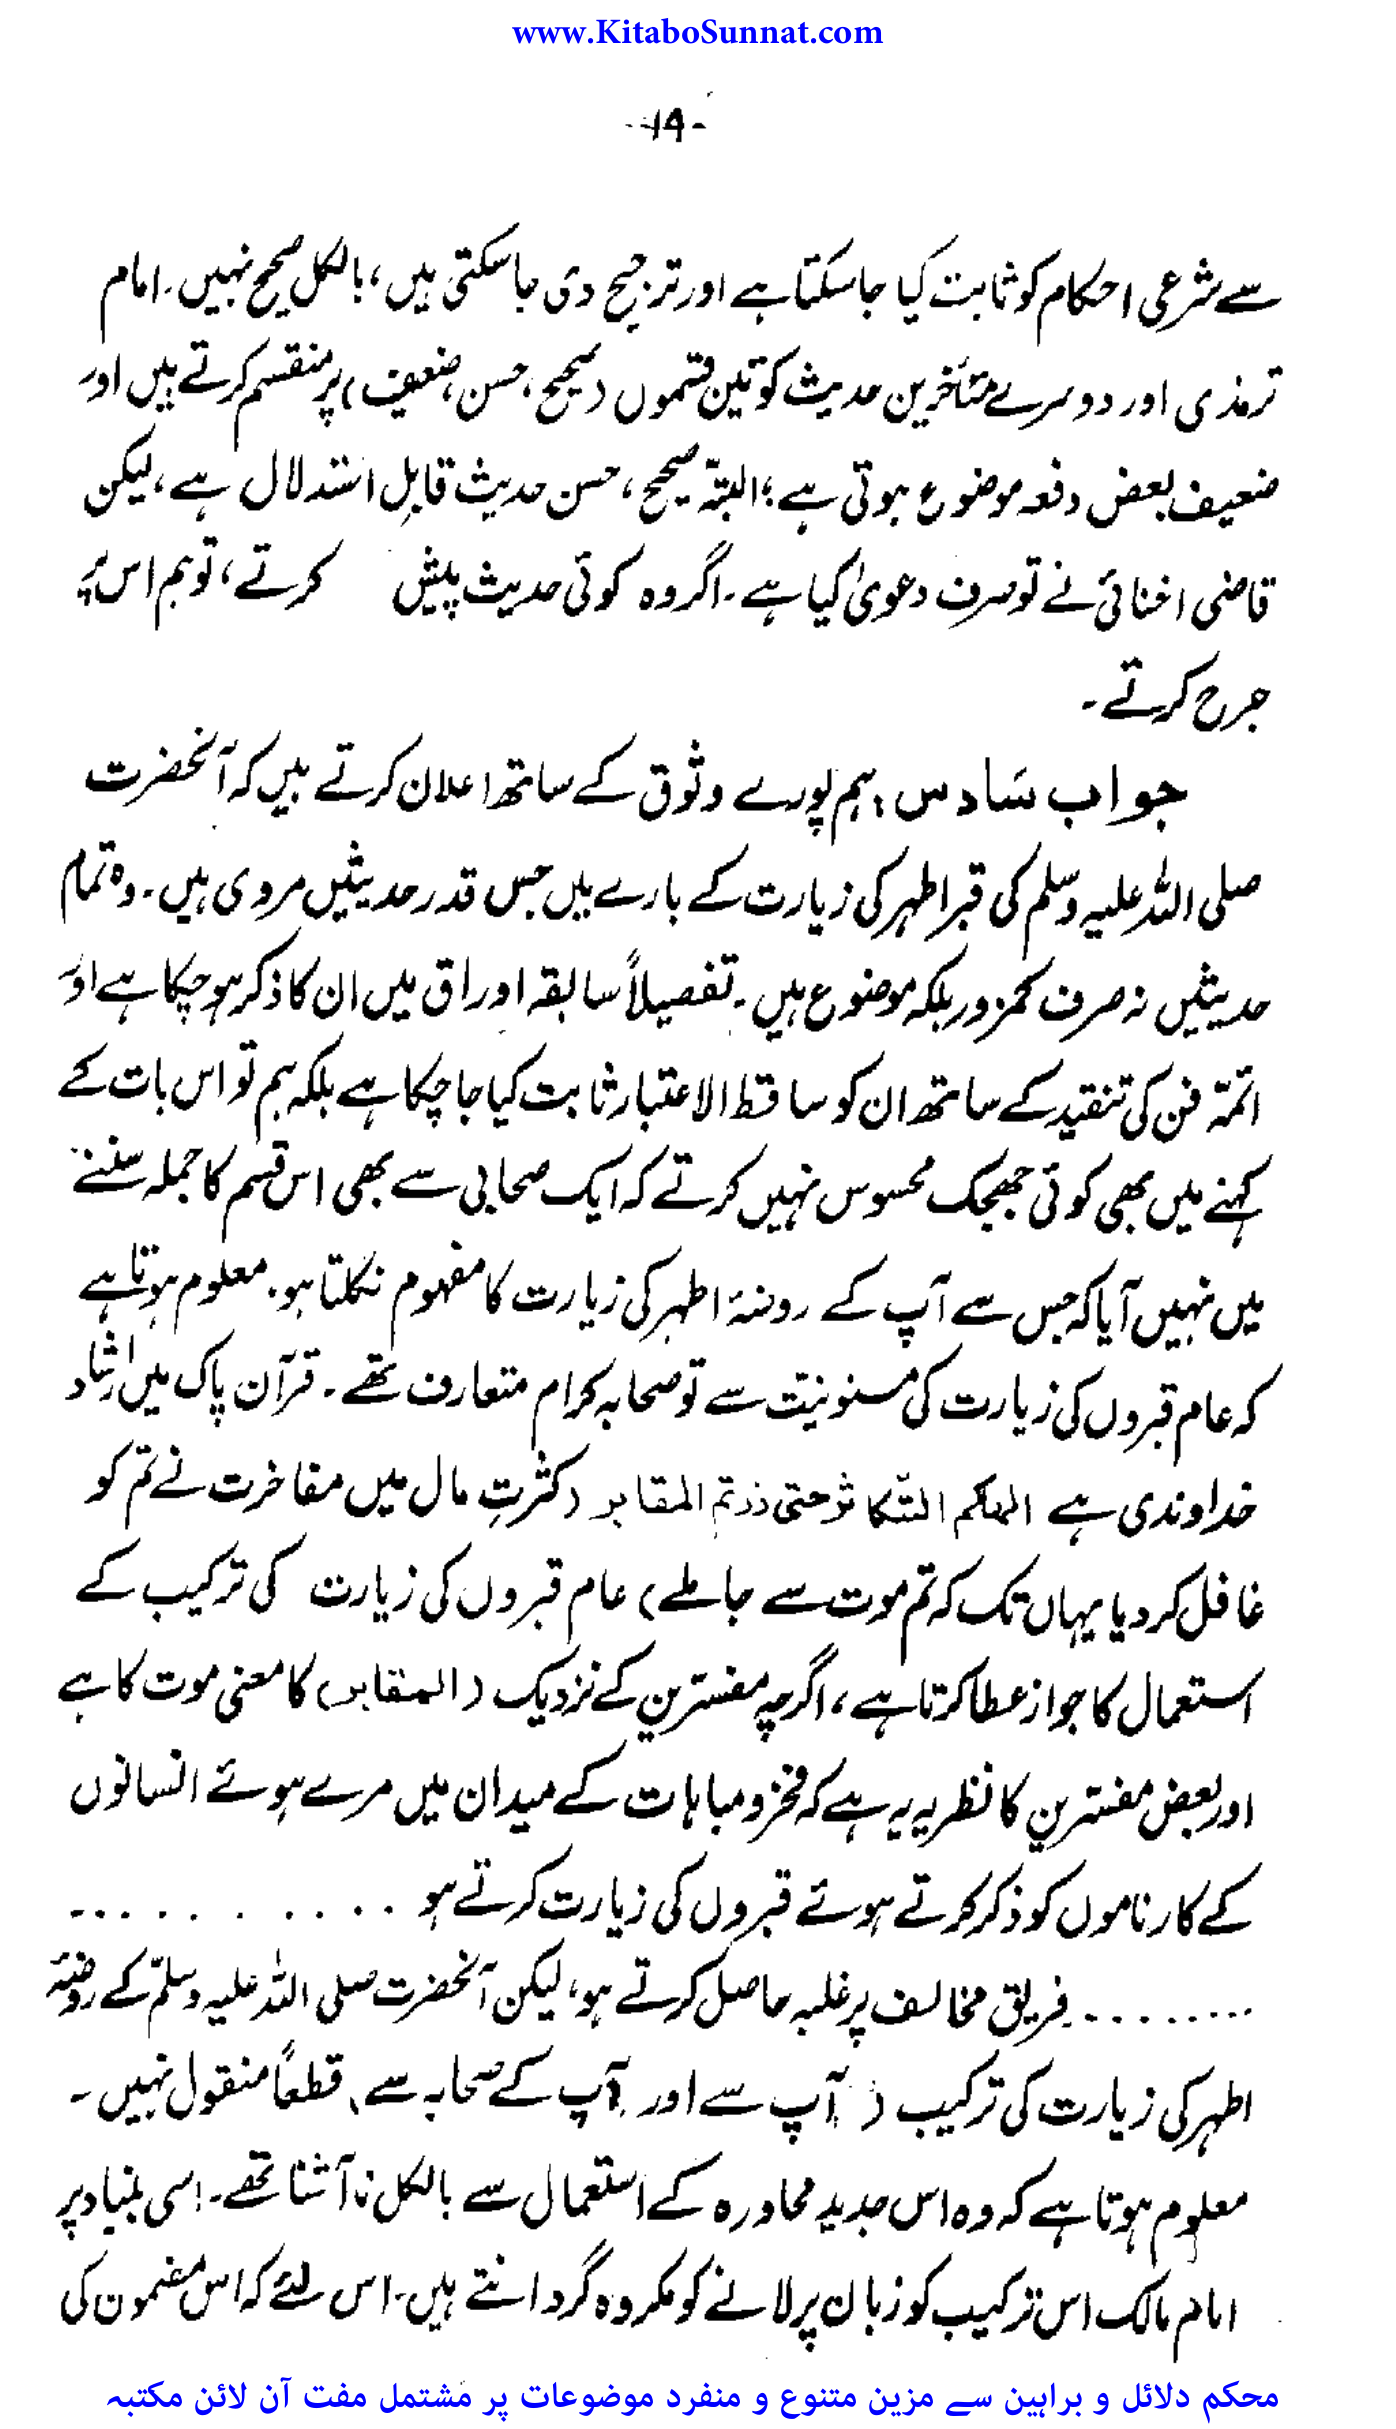 www.KitaboSunnat.com
-14-
سے شرعی احکام کو ثابت کیا جاسکتا ہے اور ترجیح دی جاسکتی ہیں، بالکل صحیح نہیں۔ امام
ترمذی اور دوسرے متأخرین حدیث کو تین قسموں (صحیح، حسن، ضعیف) پر منقسم کرتے ہیں اور
ضعیف بعض دفعہ موضوع ہوتی ہے؛ البتہ صحیح، حسن حدیث قابلِ استدلال ہے، لیکن
قاضی اخنائی نے تو صرف دعویٰ کیا ہے۔ اگر وہ کوئی حدیث پیش کرتے، تو ہم اس پر
جرح کرتے۔
جواب سادس: ہم پورے وثوق کے ساتھ اعلان کرتے ہیں کہ آنحضرت
صلی اللہ علیہ وسلم کی قبر اطہر کی زیارت کے بارے میں جس قدر حدیثیں مروی ہیں۔ وہ تمام
حدیثیں نہ صرف کمزور بلکہ موضوع ہیں۔ تفصیلاً سابقہ اوراق میں ان کا ذکر ہوچکا ہے اور
ائمۂ فن کی تنقید کے ساتھ ان کو ساقط الاعتبار ثابت کیا جاچکا ہے بلکہ ہم تو اس بات کے
کہنے میں بھی کوئی جھجک محسوس نہیں کرتے کہ ایک صحابی سے بھی اس قسم کا جملہ سننے
میں نہیں آیا کہ جس سے آپ کے روضۂ اطہر کی زیارت کا مفہوم نکلتا ہو۔ معلوم ہوتا ہے
کہ عام قبروں کی زیارت کی مسنونیت سے تو صحابہ کرام متعارف تھے۔ قرآن پاک میں ارشاد
خداوندی ہے الھکم التکاثر حتی زرتم المقابر (کثرتِ مال میں مفاخرت نے تم کو
غافل کردیا یہاں تک کہ تم موت سے جاملے) عام قبروں کی زیارت کی ترکیب کے
استعمال کا جواز عطا کرتا ہے، اگرچہ مفسترین کے نزدیک (المقابر) کا معنی موت کا ہے
اور بعض مفسترین کا نظریہ یہ ہے کہ فخر و مباہات کے میدان میں مرے ہوئے انسانوں
کے کارناموں کو ذکر کرتے ہوئے قبروں کی زیارت کرتے ہو ...........
......... فریق مخالف پر غلبہ حاصل کرتے ہو، لیکن آنحضرت صلی اللہ علیہ وسلّم کے روضۂ
اطہر کی زیارت کی ترکیب (آپ سے اور آپ کے صحابہ سے) قطعاً منقول نہیں۔
معلوم ہوتا ہے کہ وہ اس جدید محاورہ کے استعمال سے بالکل ناآشنا تھے۔ اسی بنیاد پر
امام مالک اس ترکیب کو زبان پر لانے کو مکروہ گردانتے ہیں۔ اس لئے کہ اس مضمون کی
محکم دلائل و براہین سے مزین متنوع و منفرد موضوعات پر مشتمل مفت آن لائن مکتبہ